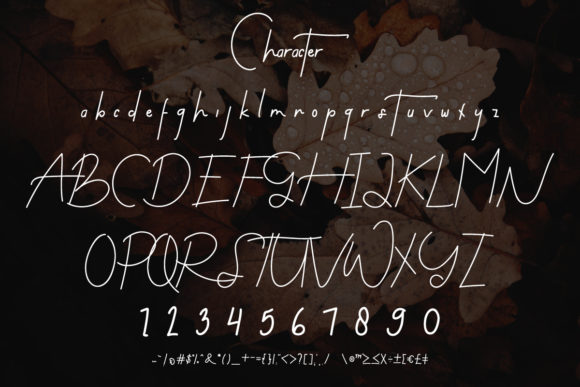 Character
a b c d e f g h i j k l m n o p q r s t u v w x y z
A B C D E F G H I J K L M N
O P Q R S T U V W X Y Z
1 2 3 4 5 6 7 8 9 0